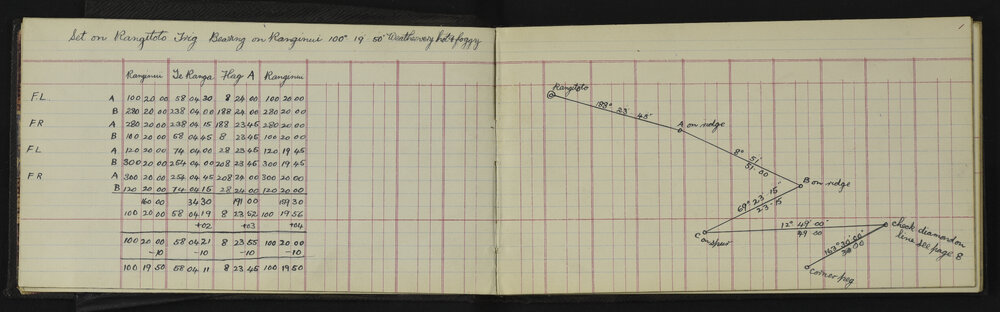 Set on Rangitoto Trig Bearing on Ranginui 100° 19' 50" Weather very hot & foggy
Ranginui Te Ranga Flag A Ranginui
F.L. A 100 20 00 58 04 30 8 24 00 100 20 00
B 280 20 00 238 04 00 188 24 00 280 20 00
FR A 280 20 00 238 04 15 188 23 45 280 20 00
B 100 20 00 58 04 45 8 23 45 100 20 00
FL A 120 20 00 74 04 00 28 23 45 120 19 45
B 300 20 00 254 04 00 208 23 45 300 19 45
FR A 300 20 00 254 04 45 208 24 00 300 20 00
B 120 20 00 74 04 15 28 24 00 120 20 00
160 00 34 30 191 00 159 30
100 20 00 58 04 19 8 23 52 100 19 56
+02 +03 +04
100 20 00 58 04 21 8 23 55 100 20 00
-10 -10 -10 -10
100 19 50 58 04 11 8 23 45 100 19 50
1
Rangitoto
188° 23' 45"
A on ridge
8° 51'
51 00
B on ridge
69° 23' 15"
23 15
C on spur
12° 49' 00"
49 00
Check diamond on
line see page 8
153° 30' 00"
30 00
Corner peg